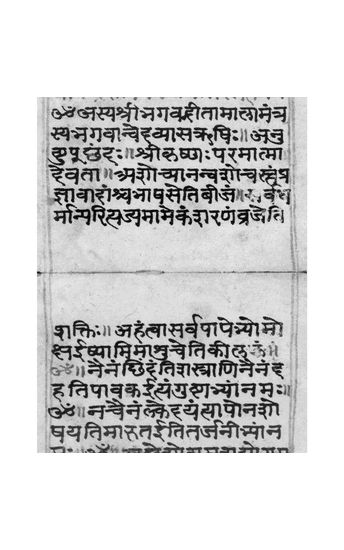 ॐअस्यश्रीभगवद्गीतामालामंत्र
स्यभगवान्वेदव्यासऋषिः॥अनु
ष्टुप्छंदः॥श्रीकृष्णःपरमात्मा
देवता॥अशोच्यानन्वशोचस्त्वंप्र
ज्ञावादांश्चभाषसेतिबीजं॥सर्वध
र्मान्परित्यज्यमामेकंशरणंव्रजेति
शक्तिः॥अहंत्वासर्वपापेभ्योमो
क्षईष्यामिमाशुचेतिकीलकं॥
॥नैनंछिदंतिशस्त्राणिनैनंद
हतिपावकईत्यंगुष्ठाभ्यांनमः॥
ॐ॥नचैनंक्लेदयंत्यापोनशो
षयतिमारुतईतितर्जनीभ्यांन
मः॥ॐ॥